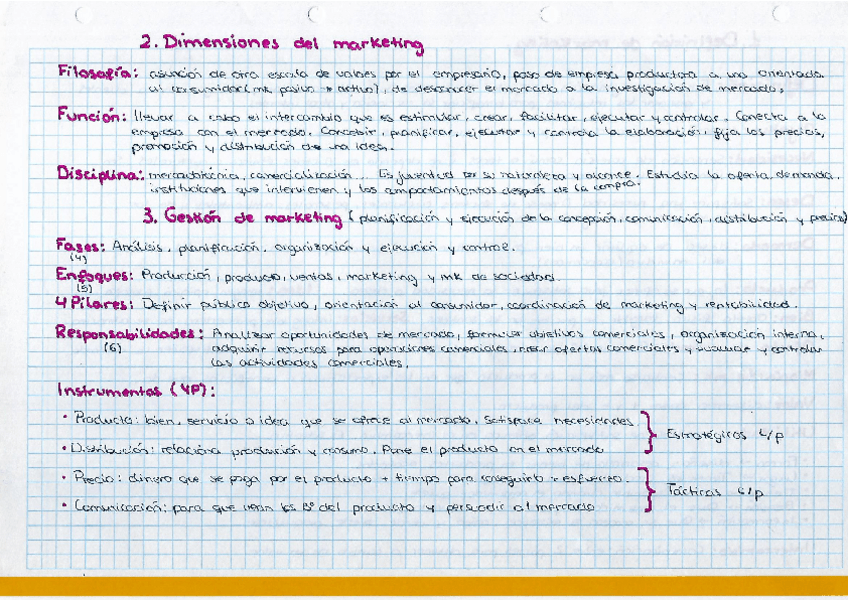 2. Dimensiones del marketing
Filosofía: asunción de otra escala de valores por el empresario, paso de empresa productora a una orientada
al consumidor (mk pasivo → activo), de desconocer el mercado a la investigación de mercados.
Función: llevar a cabo el intercambio que es estimular, crear, facilitar, ejecutar y controlar. Conecta a la
empresa con el mercado. Concebir, planificar, ejecutar y controla la elaboración, fija los precios,
promoción y distribución de una idea.
Disciplina: mercadotecnia, comercialización... Es juventud por su naturaleza y alcance. Estudia la oferta, demanda,
instituciones que intervienen y los comportamientos después de la compra.
3. Gestión de marketing (planificación y ejecución de la concepción, comunicación, distribución y precios)
Fases: Análisis, planificación, organización y ejecución y control.
(4)
Enfoques: Producción, producto, ventas, marketing y mk de sociedad.
(5)
4 Pilares: Definir público objetivo, orientación al consumidor, coordinación de marketing y rentabilidad.
Responsabilidades: Analizar oportunidades de mercado, formular objetivos comerciales, organización interna,
(6) adquirir recursos para operaciones comerciales, ofertas comerciales y evaluar y controlar
las actividades comerciales.
Instrumentos (4P):
• Producto: bien, servicio o idea que se ofrece al mercado. Satisface necesidades
• Distribución: relaciona producción y consumo. Pone el producto en el mercado
Estratégicos L/p
• Precio: dinero que se paga por el producto + tiempo para conseguirlo + esfuerzo.
• Comunicación: para que vean los Bº del producto y persuadir al mercado
Tácticas c/p